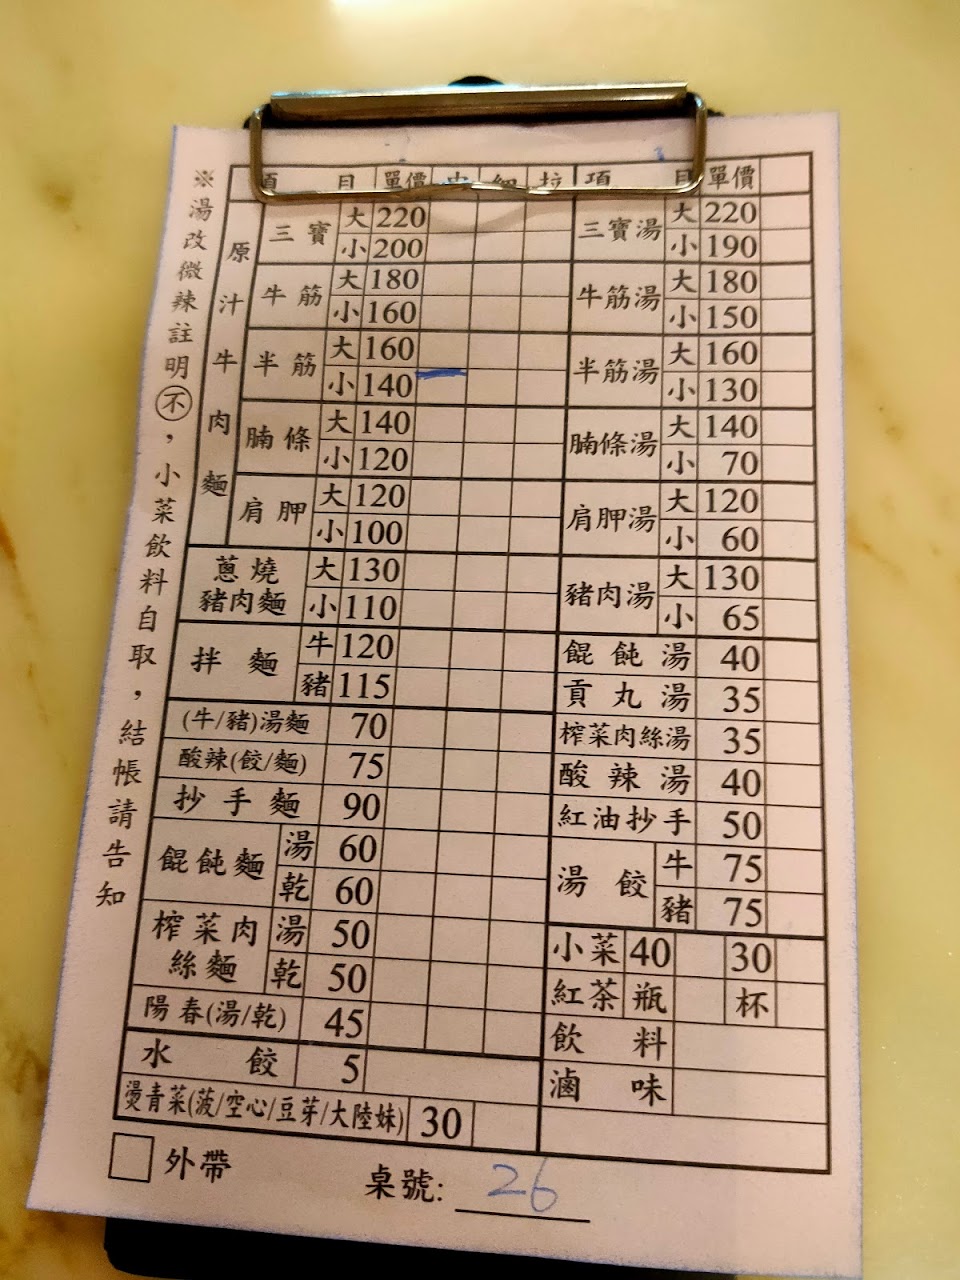 ※湯改微辣註明不，小菜飲料自取，結帳請告知
項 目 單價 細 拉 項 目 單價
原汁牛肉麵
三寶 大 220 三寶湯 大 220
小 200 小 190
牛筋 大 180 牛筋湯 大 180
小 160 小 150
半筋 大 160 半筋湯 大 160
小 140 小 130
腩條 大 140 腩條湯 大 140
小 120 小 70
肩胛 大 120 肩胛湯 大 120
小 100 小 60
蔥燒豬肉麵 大 130 豬肉湯 大 130
小 110 小 65
拌麵 牛 120 餛飩湯 40
豬 115 貢丸湯 35
(牛/豬)湯麵 70 榨菜肉絲湯 35
酸辣(餃/麵) 75 酸辣湯 40
抄手麵 90 紅油抄手 50
餛飩麵 湯 60 湯餃 牛 75
乾 60 豬 75
榨菜肉絲麵 湯 50 小菜 40 30
乾 50 紅茶 瓶 杯
陽春(湯/乾) 45 飲料
水餃 5 滷味
燙青菜(菠/空心/豆芽/大陸妹) 30
外帶 桌號: 26